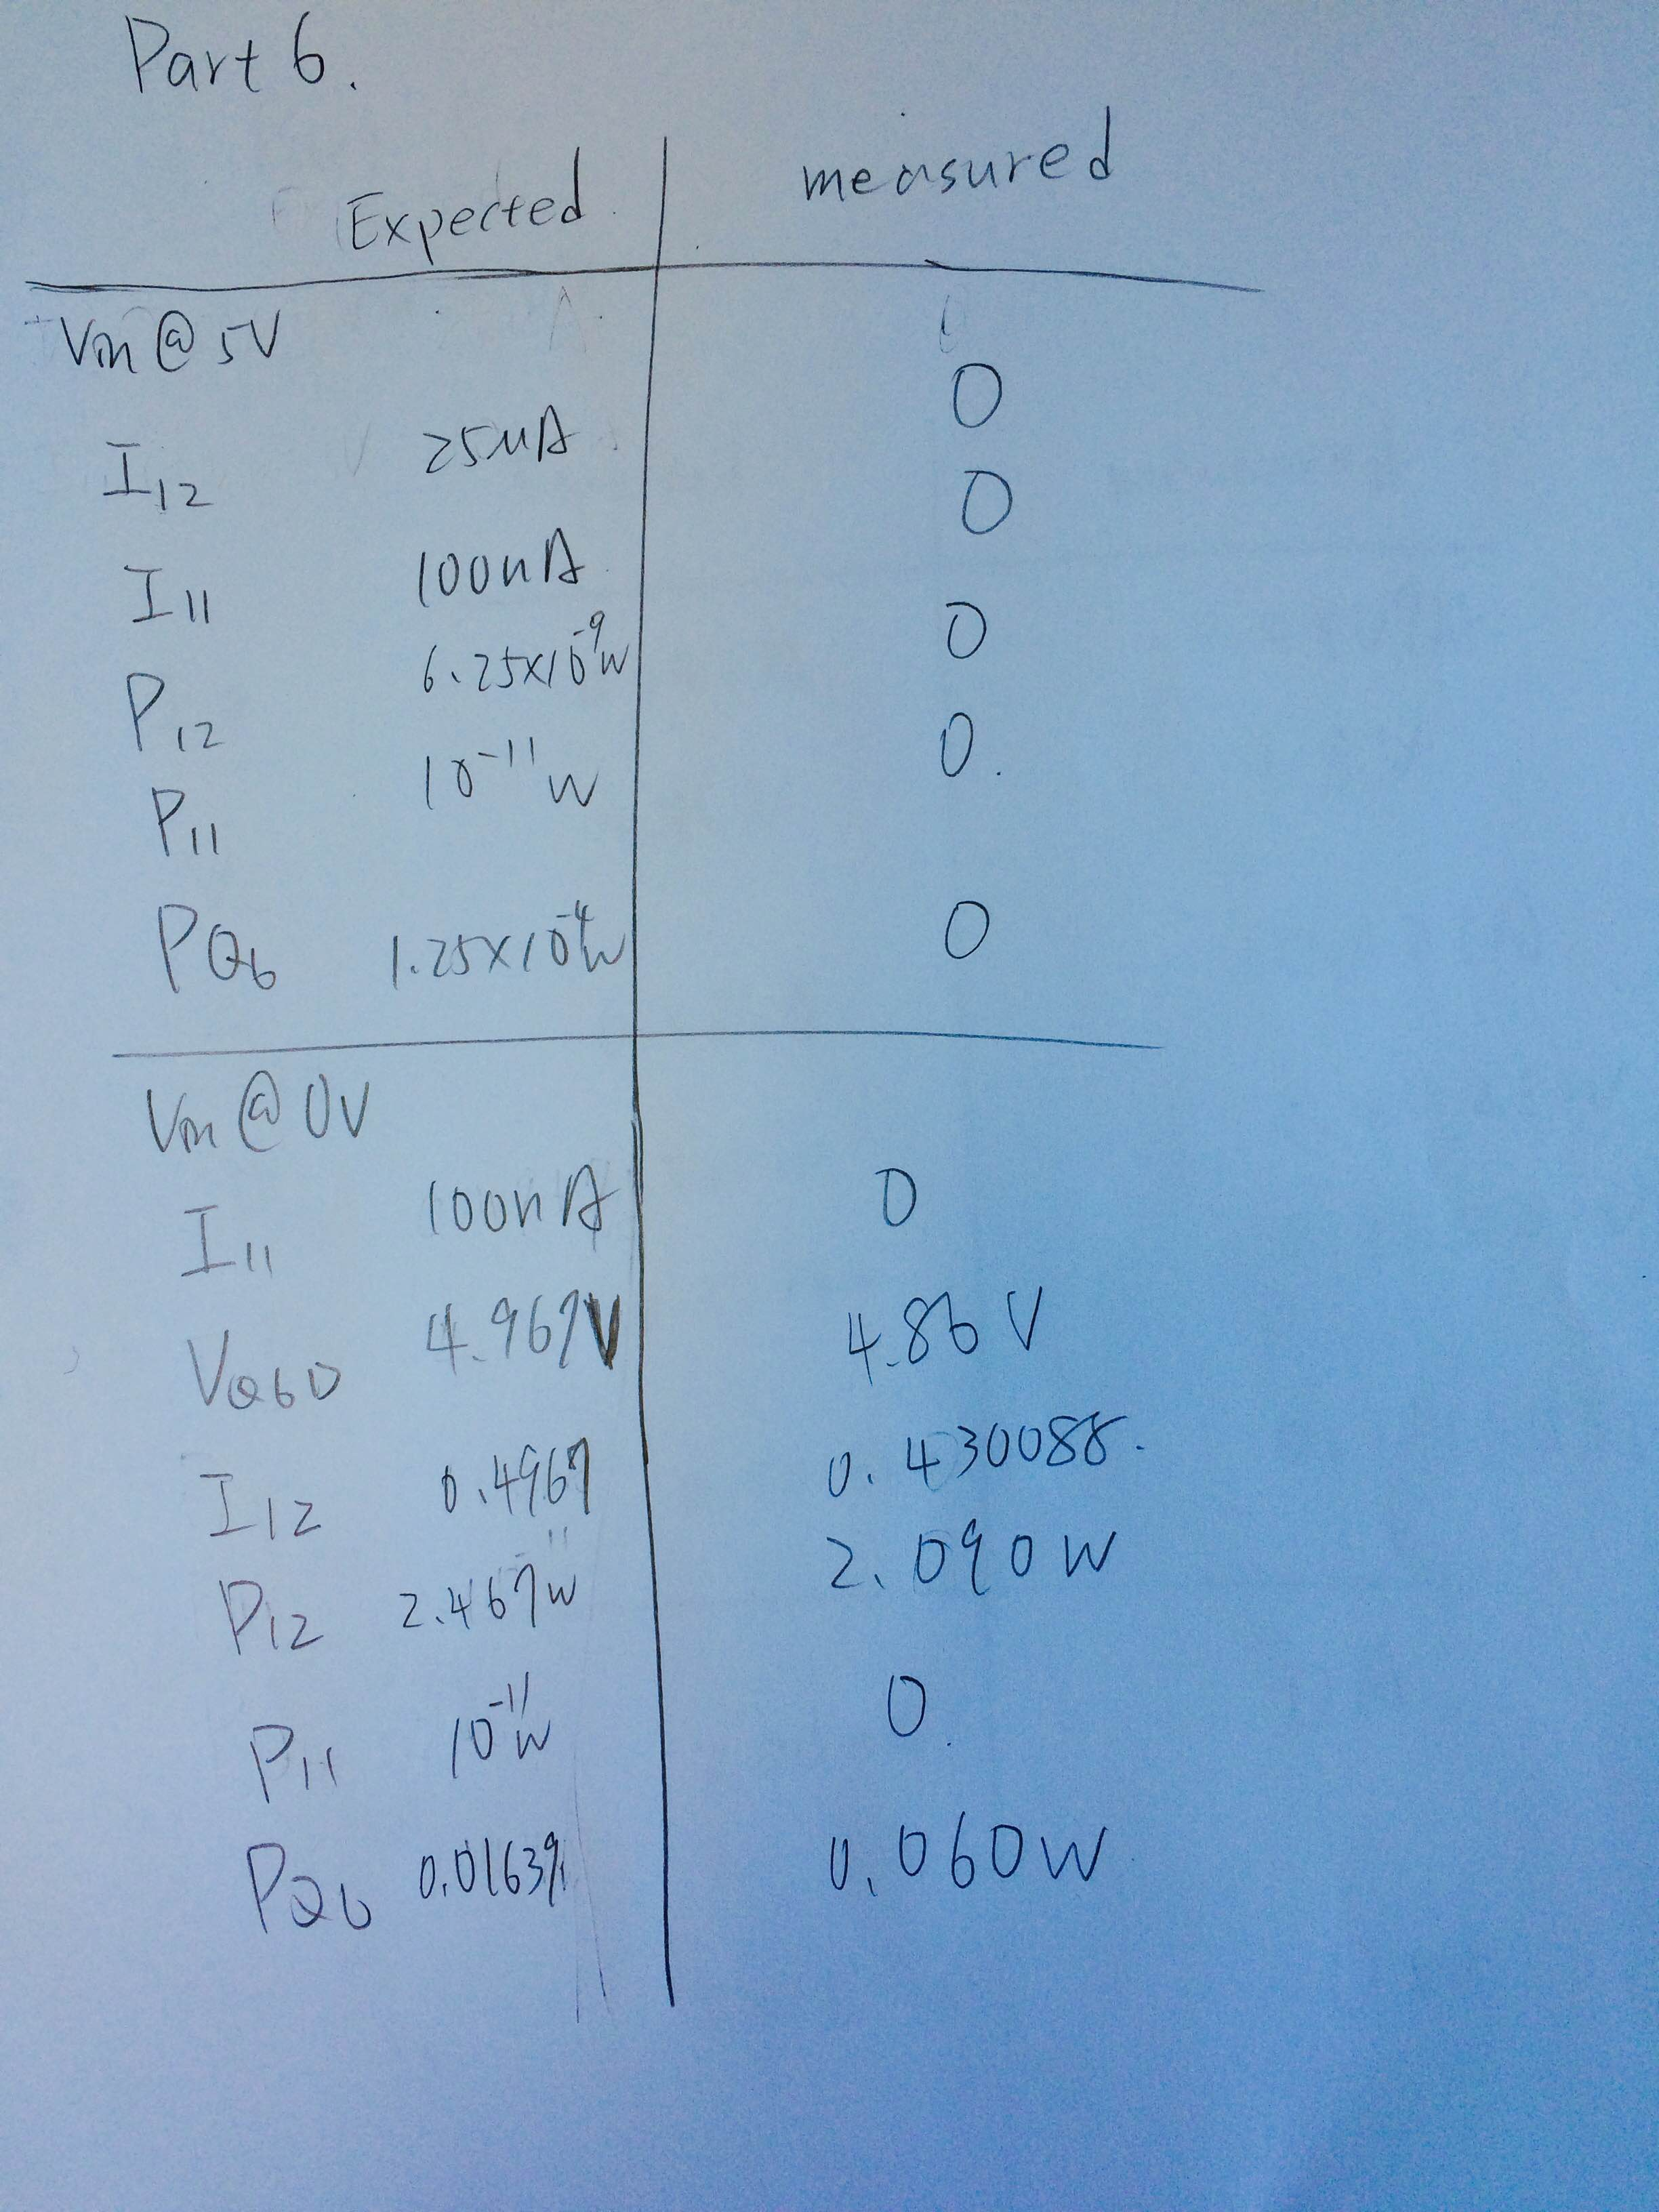 Part 6.
Expected measured
Vin @ 5V
I12 25uA 0
I11 100nA 0
P12 6.25x10^-9 W 0
P11 10^-11 W 0.
PQ6 1.25x10^-4 W 0
Vin @ 0V
I11 100nA 0
VQ6D 4.967V 4.86 V
I12 0.4967 0.430088.
P12 2.467W 2.090W
P11 10^-11 W 0.
PQ6 0.01639 0.060W